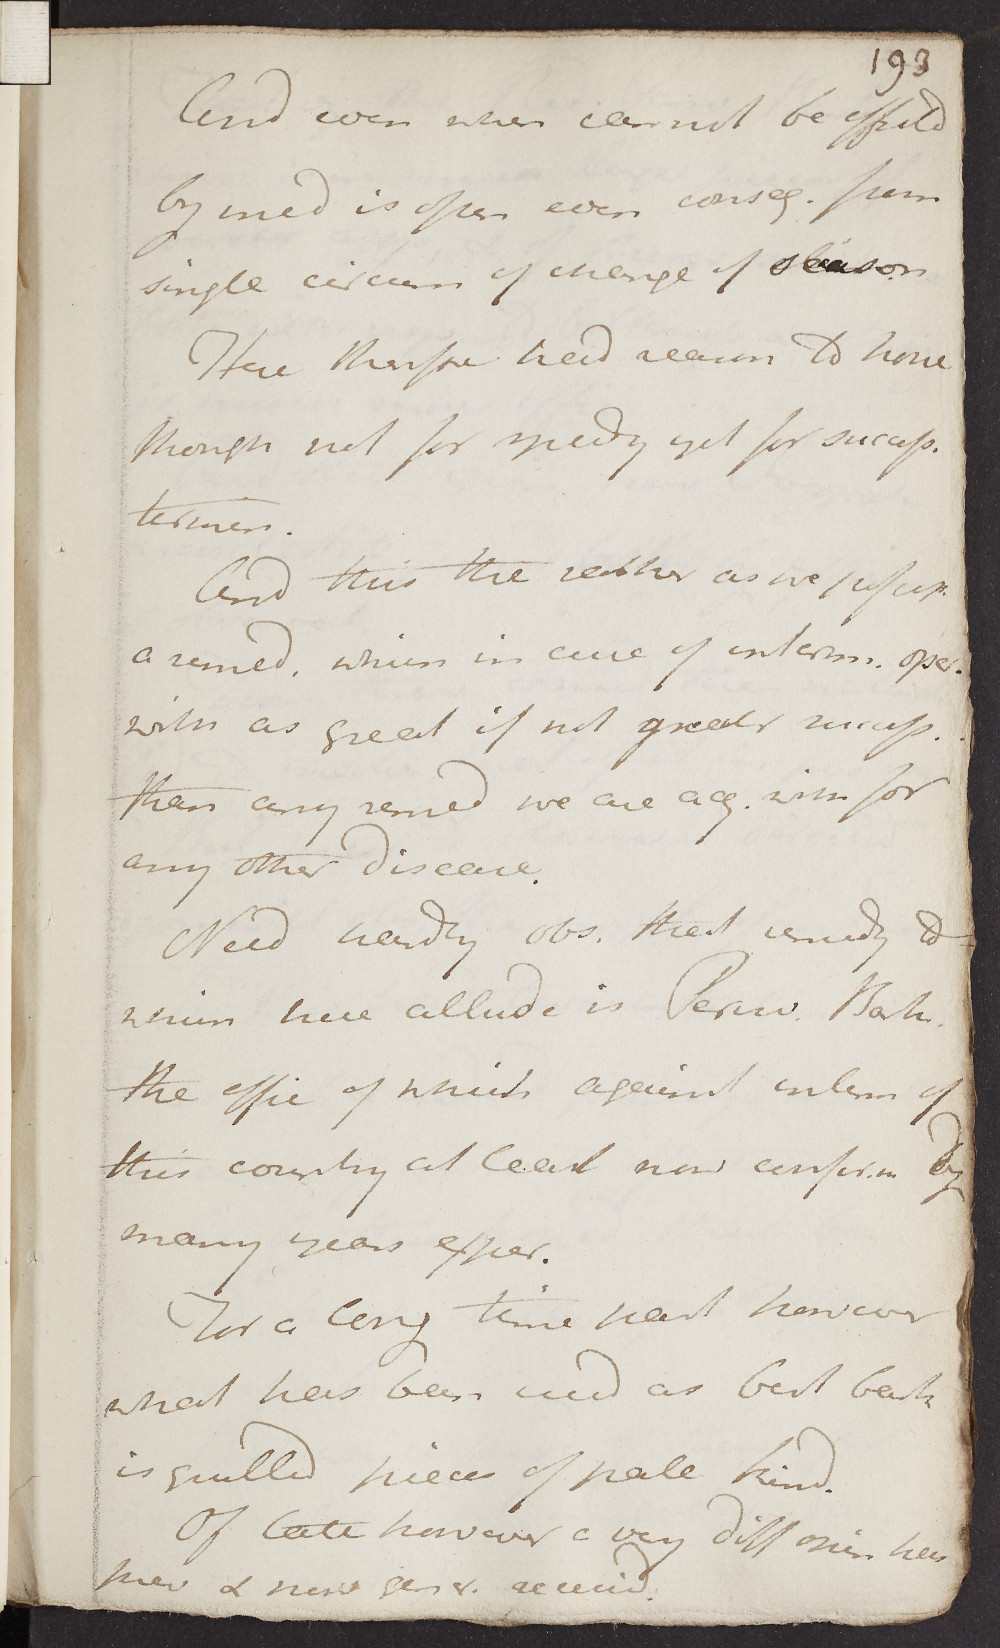 193
And even when cannot be effected
by med is often even conseq. from
single circum of change of season
Here therefore had reason to hope
though not for speedy yet for success.
termin.
And this the rather as we possess
a remed. which in case of interm. oper.
with as great if not greater success.
than any remed we are acq. with for
any other disease.
Need hardly obs. that remedy to
which here allude is Peruv. Bark.
the effic of which against interm of
this country at least now confirm by
many years exper.
For a long time past however
what has been used as best bark
is quilled pieces of pale kind.
Of late however a very diff opin has
prev & now gener. received.